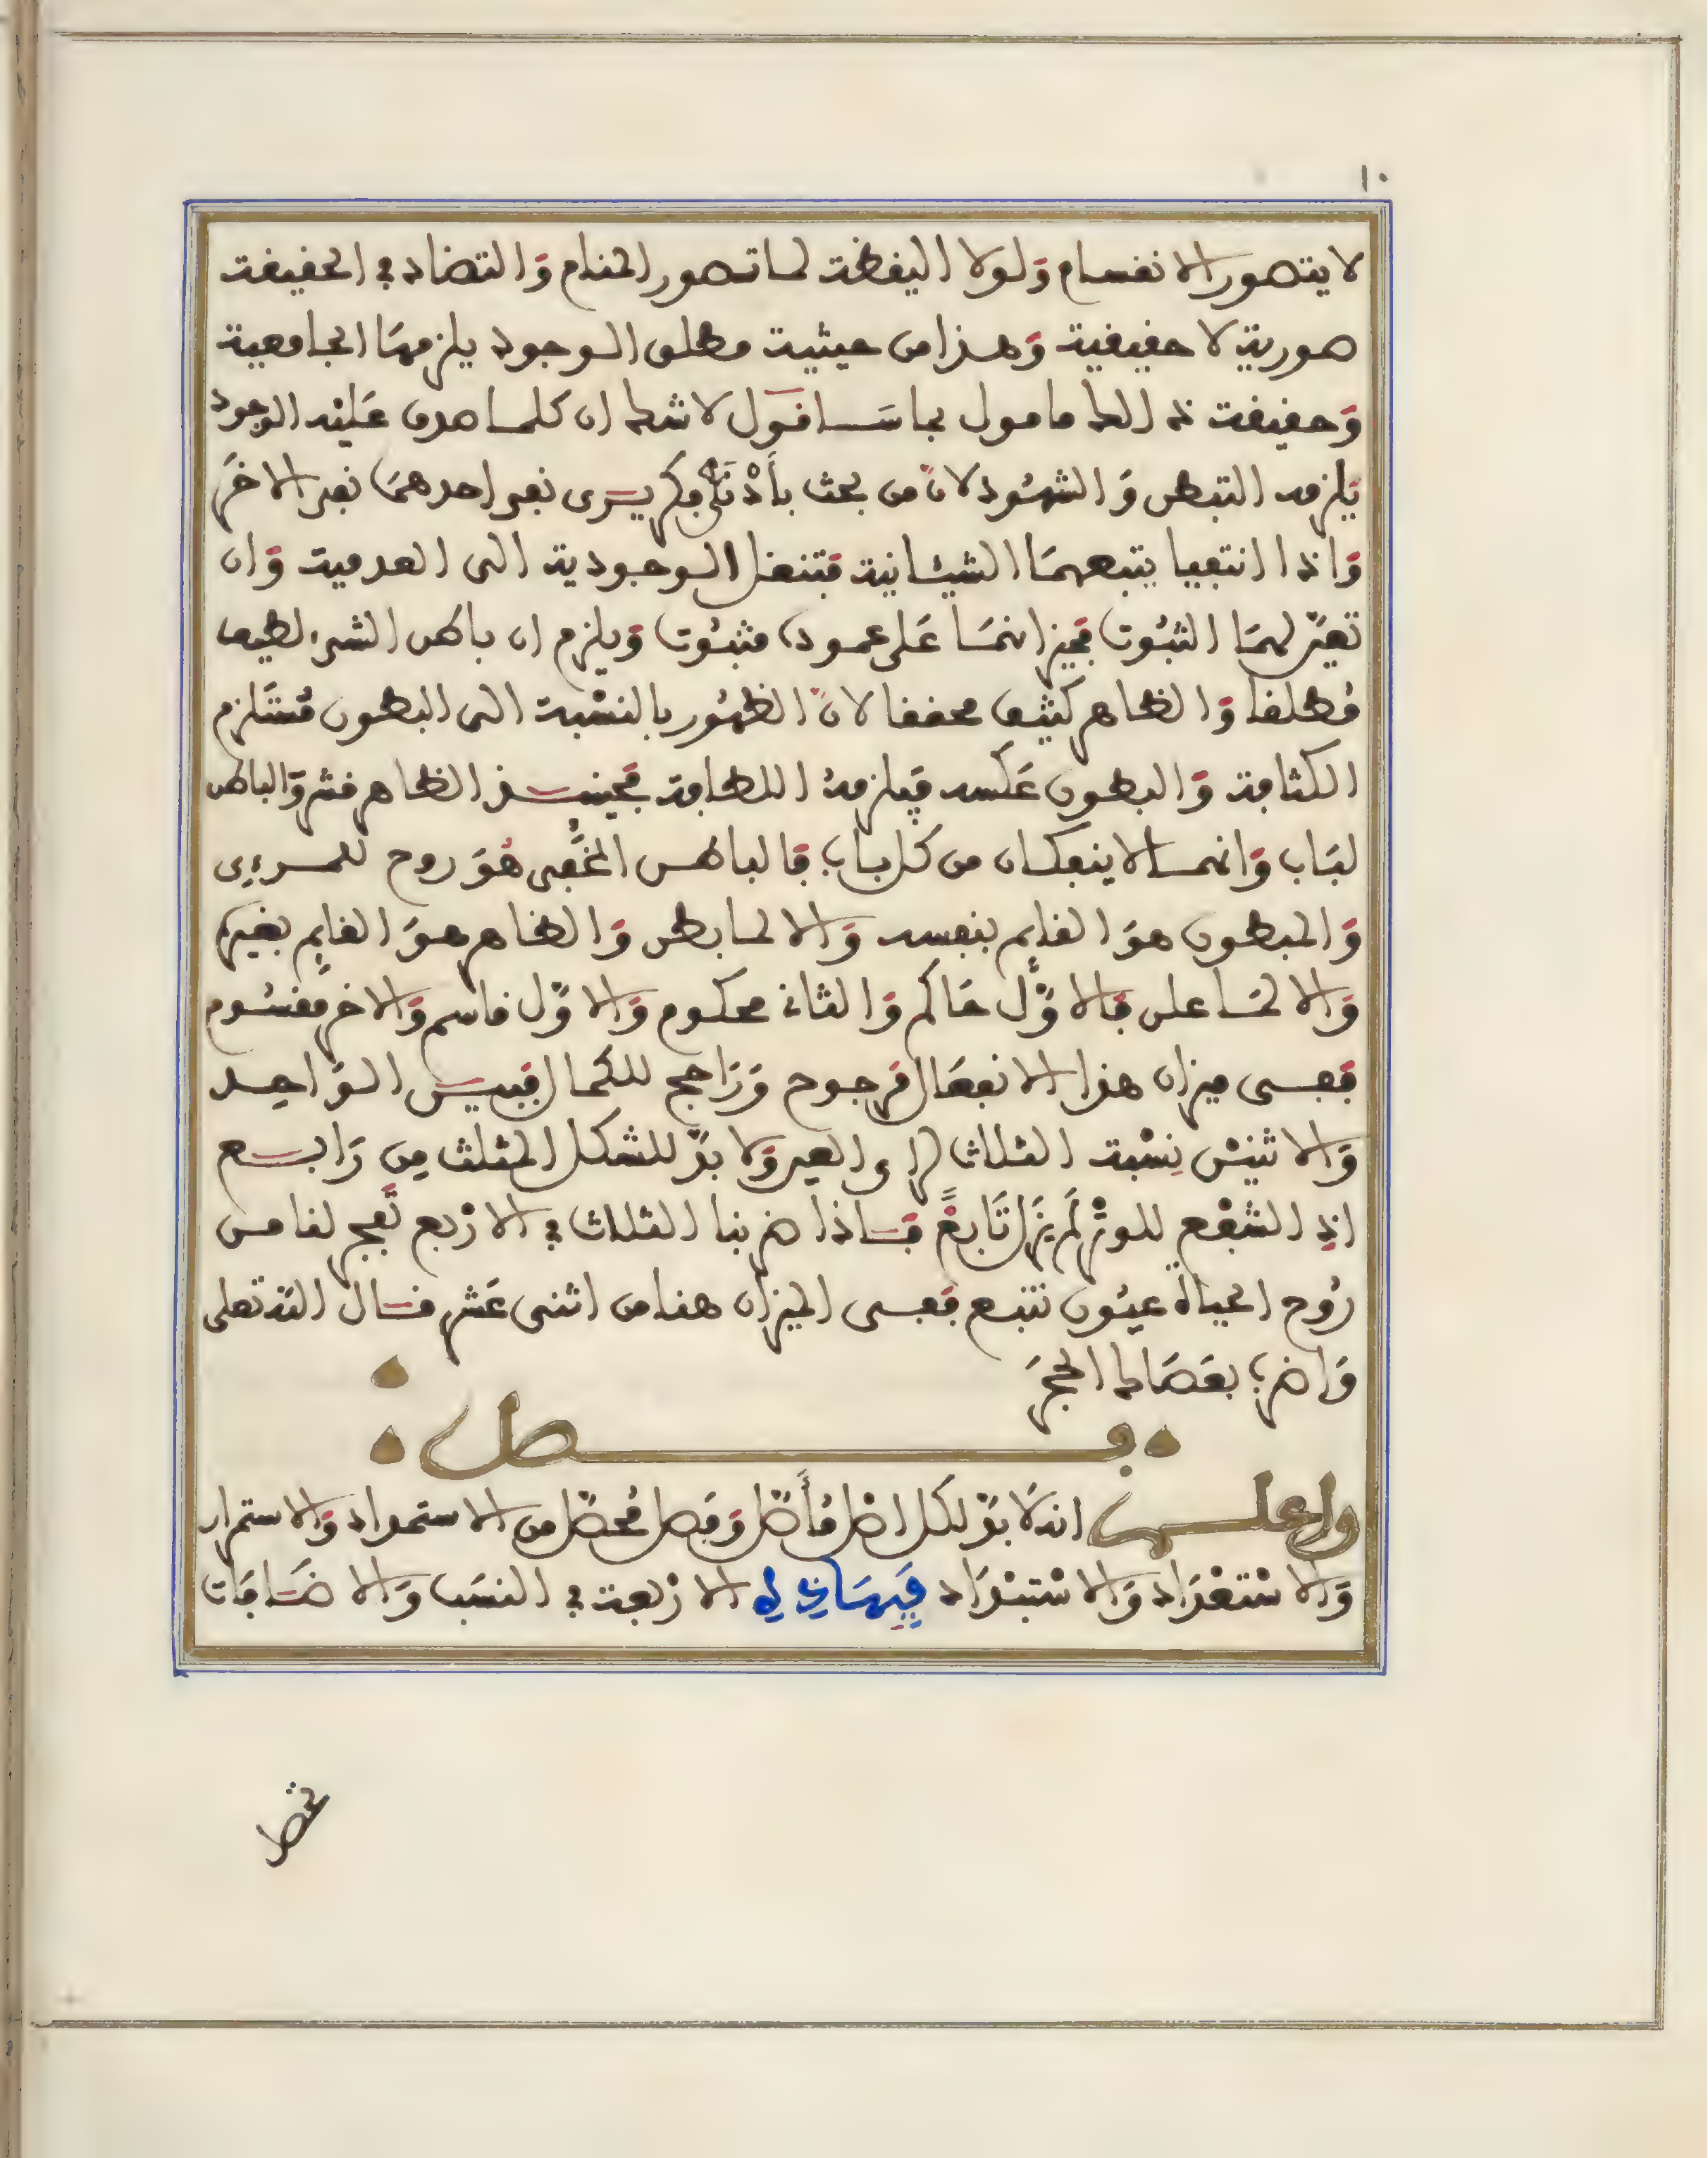 ١٠
لا يتصور الانقسام ولولا اليقظة لما تصور المنام والتضاد في الحقيقة
صورية لا حقيقية وهذا من حيثية مطلق الوجود يلزمها الجامعية
وحقيقة ذلك مامول بما سأقول لا شك ان كلما صدق عليه الوجود
يلزمه التبطن والشهود لانّ من بحث بأدْنَى فكر يرى نفي احدهما نفي الاخرَ
واذا انتفيا يتبعهما الشيئانية فتنقل الوجودية الى العدمية وان
تعيّن لهما الثبوت فميزانهما على عمود مثبوت ويلزم ان باطن الشيء لطيف
مُطلقا والظاهر كثيف محققا لانّ الظهور بالنسْبة الى البطون مُسْتلزم
الكثافة والبطون عَكسه فيلزمهُ اللطافة فحينئذ الظاهر قشر والباطن
لبَاب وانهما لا ينفكان من كل باب فالباطن المخفى هُوَ روح للمرءي
والمبطون هوَ القايم بنفسه والا لما بطن والظاهر هوَ القايم بغيره
والا لما على فالاوّل حَاكم والثاني محكوم والاوّل قاسم والاخر مقسُوم
ففى ميزان هذا الانفصَال مرجوح ورَاجح للكمال فبين الواحِد
والاثنين نِسْبة الثلاث لراي العين ولا بدّ للشكل المثلث مِن رَابع
اذِ الشفع للوترْ لَمْ يَزل تَابعًا فاذا ضربنا الثلاث في الارْبع تَفجّر لنا من
رُوح الحياة عيُون تنبع ففى الميزان هنا من اثنى عَشر قال الله تعلى
وَاضرب بعَصَاك الحجرَ
فصل
واعلم انه لا بدّ لكل اصْل مُأصّل وفصل مُحصّل من الاستمداد والاستمرار
والاسْتعْدَاد والاسْتبْدَاد فهَاذِهِ الارْبعة في النسَب والاضَافات